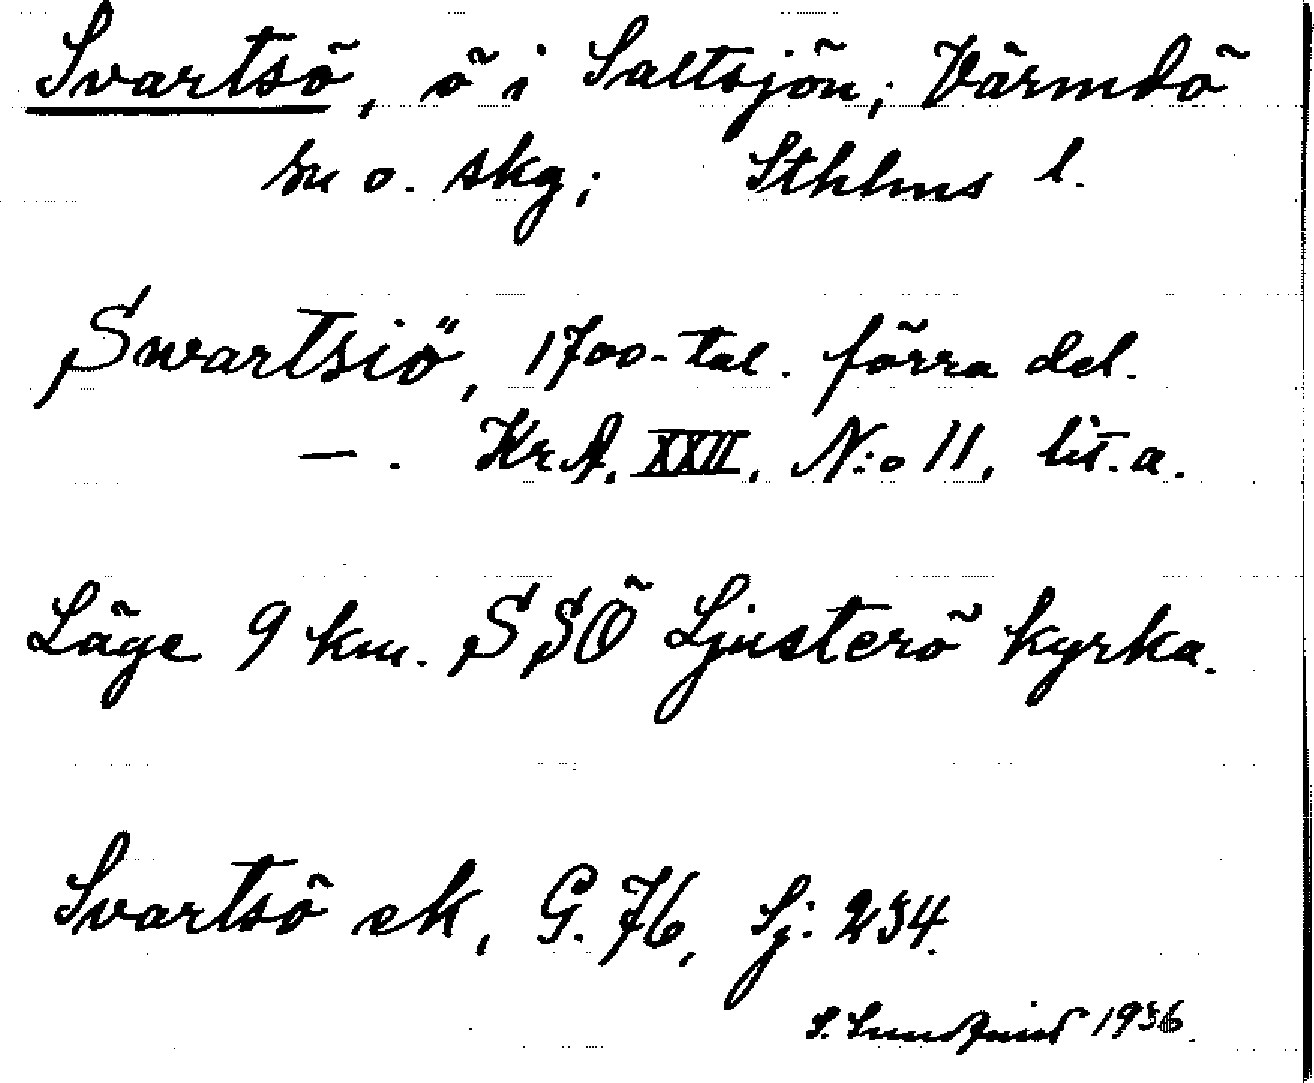 Svartsö, ö i Saltsjön; Värmdö
sn o. skg; Sthlms l.
Swartsiö, 1700-tal. förra del.
—. KrA. XXII. N:o 11, lit. a.
Läge 9 km. SSÖ Ljusterö kyrka.
Svartsö ek, G. 76, Sj: 234.
S. Lundqvist 1936.